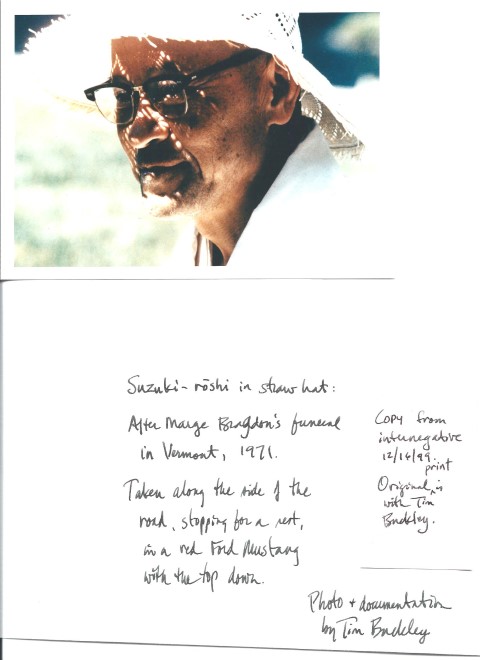 Suzuki-rōshi in straw hat:
After Marge Bragdon's funeral
in Vermont, 1971.
Taken along the side of the
road, stopping for a rest,
in a red Ford Mustang
with the top down.
Copy from
internegative
12/14/99.
print
Original is
with Tim
Buckley.
Photo + documentation
by Tim Buckley